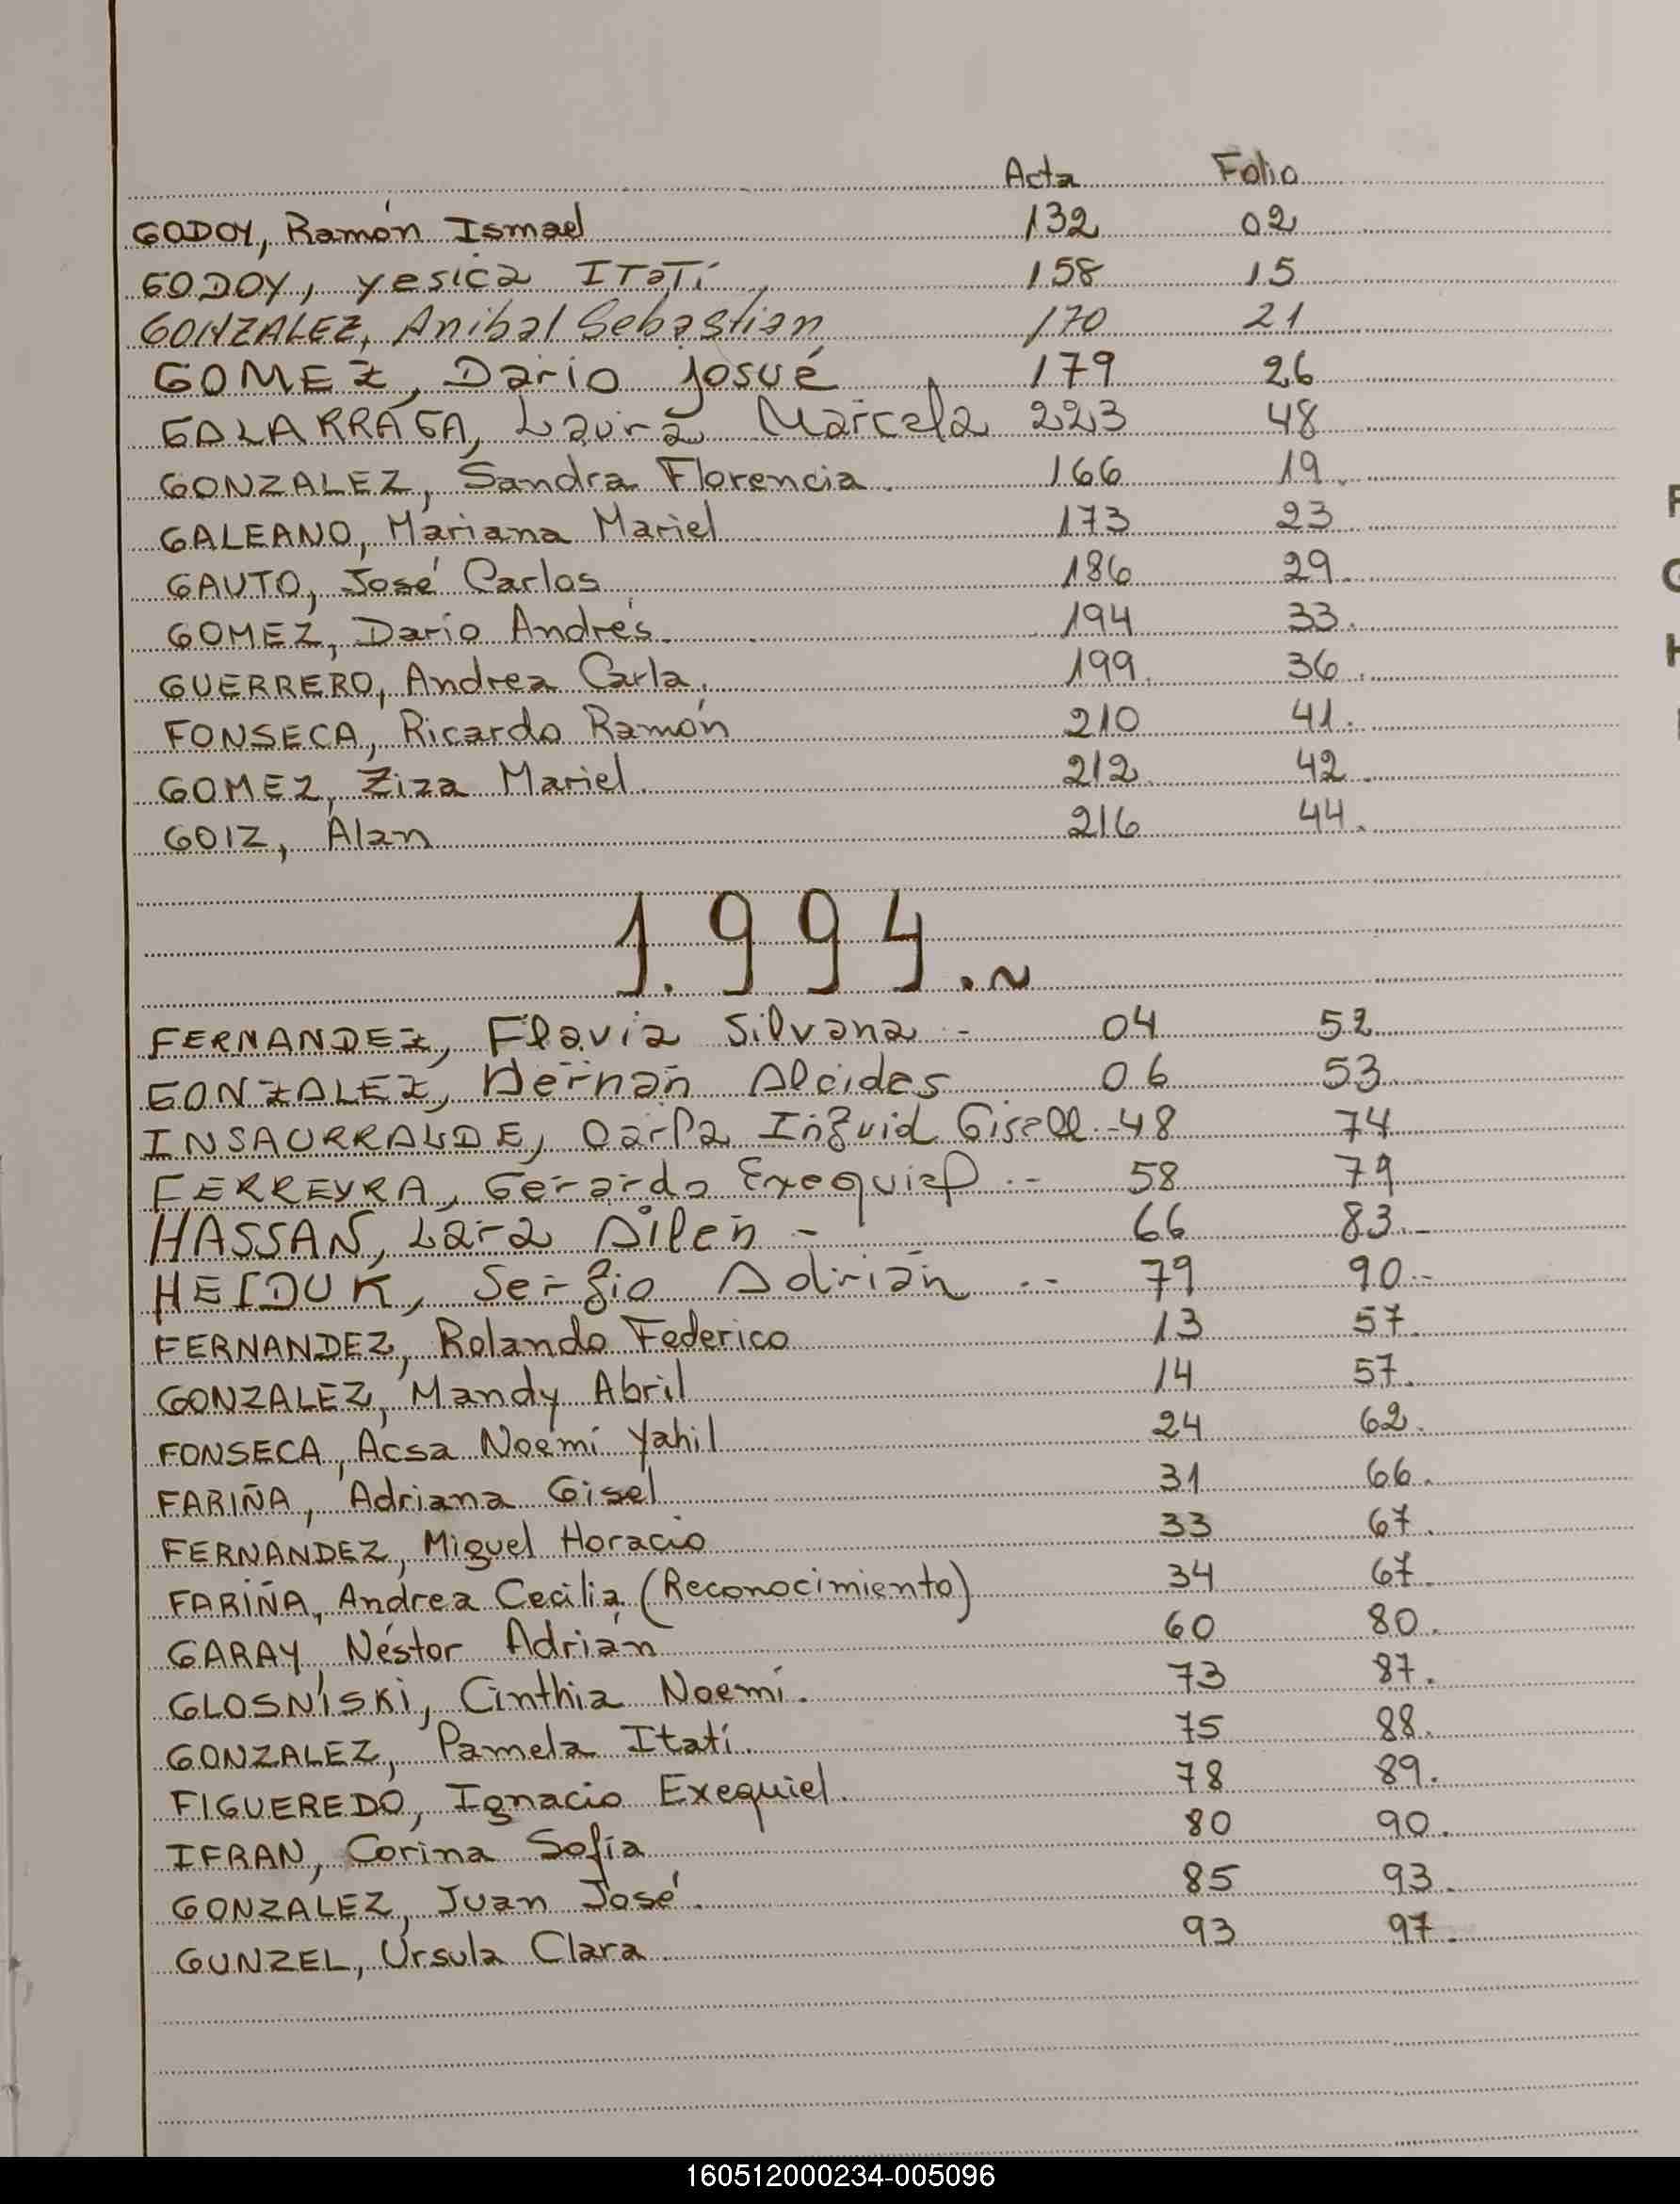 Acta Folio
GODOY, Ramón Ismael 132 02
GODOY, yesica ITaTí 158 15
GONZALEZ, Anibal Sebastian 170 21
GOMEZ, Dario Josué 179 26
GALARRAGA, Laura Marcela 223 48
GONZALEZ, Sandra Florencia. 166 19.
GALEANO, Mariana Mariel 173 23
GAUTO, José Carlos 186 29.
GOMEZ, Dario Andrés. 194 33.
GUERRERO, Andrea Carla. 199. 36.
FONSECA, Ricardo Ramón 210 41.
GOMEZ, Ziza Mariel. 212. 42.
GOIZ, Alan 216 44.
1.994.~
FERNANDEZ, Flavia Silvana - 04 52
GONZALEZ, Hernán Alcides 06 53
INSAURRALDE, Carla Inguid Gisell.- 48 74
FERREYRA, Gerardo Exequiel .- 58 79
HASSAN, Lara Ailen - 66 83.-
HEIDUK, Sergio Adrián .- 79 90.-
FERNANDEZ, Rolando Federico 13 57.
GONZALEZ, Mandy Abril 14 57.
FONSECA, Acsa Noemí Yahil 24 62.
FARIÑA, Adriana Gisel 31 66.
FERNANDEZ, Miguel Horacio 33 67.
FARIÑA, Andrea Cecilia (Reconocimiento) 34 67.
GARAY, Néstor Adrián 60 80.
GLOSNISKI, Cinthia Noemí. 73 87.
GONZALEZ, Pamela Itatí. 75 88.
FIGUEREDO, Ignacio Exequiel. 78 89.
IFRAN, Corina Sofía 80 90.
GONZALEZ, Juan José. 85 93.
GUNZEL, Ursula Clara. 93 97.
160512000234-005096